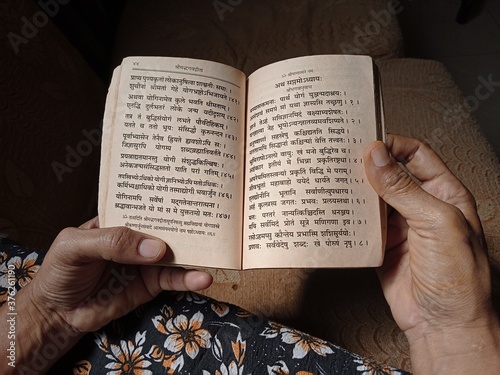 श्रीमद्भगवद्गीता
प्राप्य पुण्यकृतां लोकानुषित्वा शाश्वतीः समाः ।
शुचीनां श्रीमतां गेहे योगभ्रष्टोऽभिजायते ॥४१॥
अथवा योगिनामेव कुले भवति धीमताम् ।
एतद्धि दुर्लभतरं लोके जन्म यदीदृशम् ॥४२॥
तत्र तं बुद्धिसंयोगं लभते पौर्वदेहिकम् ।
यतते च ततो भूयः संसिद्धौ कुरुनन्दन ॥४३॥
पूर्वाभ्यासेन तेनैव ह्रियते ह्यवशोऽपि सः ।
जिज्ञासुरपि योगस्य शब्दब्रह्मातिवर्तते ॥४४॥
प्रयत्नाद्यतमानस्तु योगी संशुद्धकिल्बिषः ।
अनेकजन्मसंसिद्धस्ततो याति परां गतिम् ॥४५॥
तपस्विभ्योऽधिको योगी ज्ञानिभ्योऽपि मतोऽधिकः ।
कर्मिभ्यश्चाधिको योगी तस्माद्योगी भवार्जुन ॥४६॥
योगिनामपि सर्वेषां मद्गतेनान्तरात्मना ।
श्रद्धावान्भजते यो मां स मे युक्ततमो मतः ॥४७॥
अथ सप्तमोऽध्यायः
श्रीभगवानुवाच
मय्यासक्तमनाः पार्थ योगं युञ्जन्मदाश्रयः ।
असंशयं समग्रं मां यथा ज्ञास्यसि तच्छृणु ॥१॥
ज्ञानं तेऽहं सविज्ञानमिदं वक्ष्याम्यशेषतः ।
यज्ज्ञात्वा नेह भूयोऽन्यज्ज्ञातव्यमवशिष्यते ॥२॥
मनुष्याणां सहस्रेषु कश्चिद्यतति सिद्धये ।
यततामपि सिद्धानां कश्चिन्मां वेत्ति तत्त्वतः ॥३॥
भूमिरापोऽनलो वायुः खं मनो बुद्धिरेव च ।
अहंकार इतीयं मे भिन्ना प्रकृतिरष्टधा ॥४॥
अपरेयमितस्त्वन्यां प्रकृतिं विद्धि मे पराम् ।
जीवभूतां महाबाहो ययेदं धार्यते जगत् ॥५॥
एतद्योनीनि भूतानि सर्वाणीत्युपधारय ।
अहं कृत्स्नस्य जगतः प्रभवः प्रलयस्तथा ॥६॥
मत्तः परतरं नान्यत्किञ्चिदस्ति धनञ्जय ।
मयि सर्वमिदं प्रोतं सूत्रे मणिगणा इव ॥७॥
रसोऽहमप्सु कौन्तेय प्रभास्मि शशिसूर्ययोः ।
प्रणवः सर्ववेदेषु शब्दः खे पौरुषं नृषु ॥८॥